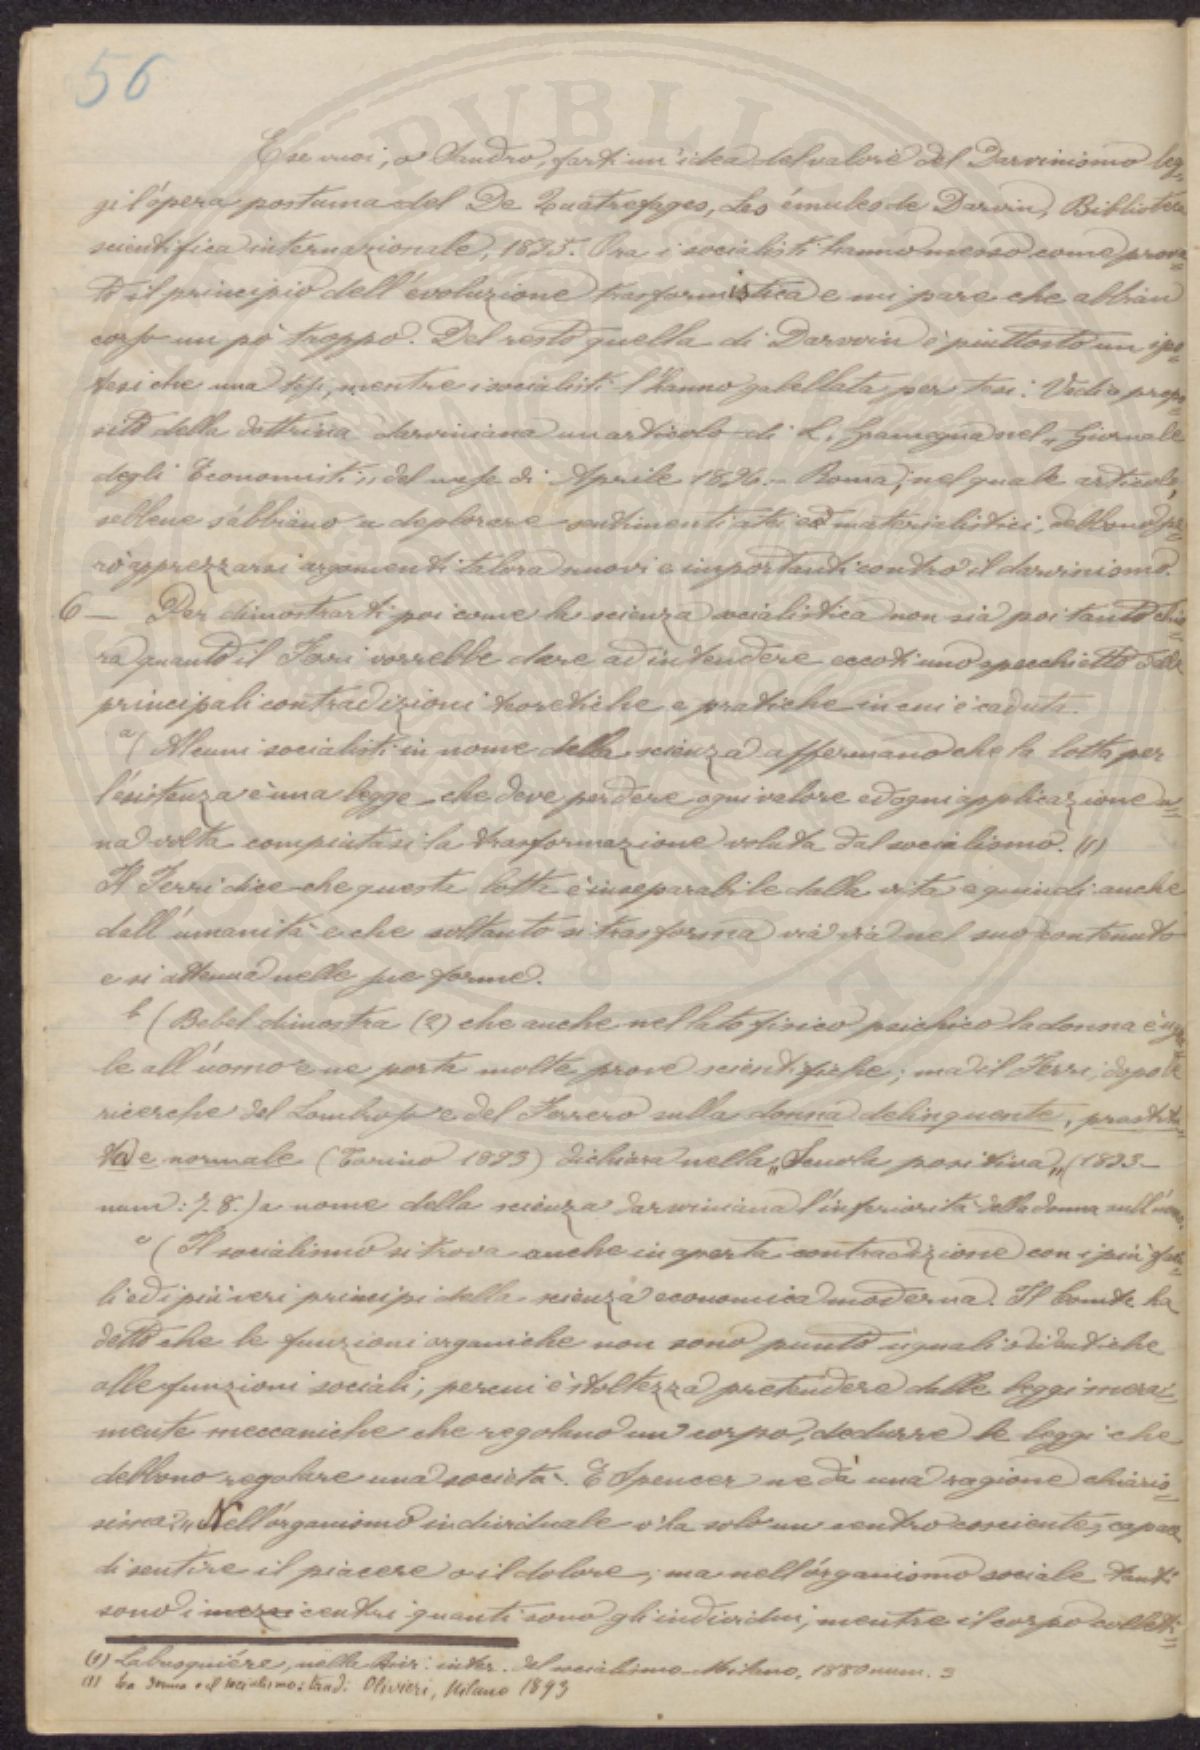 56
E se vuoi, o Sandro, farti un'idea del valore del Darvinismo leg-
gi l'opera postuma del De Quatrefages, Les émules de Darvin, Biblioteca
scientifica internazionale, 1895. Ora i socialisti hanno messo come prova-
to il principio dell'evoluzione trasformistica e mi pare che abbian
corso un pò troppo. Del resto quella di Darwin è piuttosto un ipo=
tesi che una tesi, mentre i socialisti l'hanno gabellata per tesi. Vedi a propo=
sito della dottrina darviniana un articolo di L. Gramegna nel „Giornale
degli Economisti„ del mese di Aprile 1896. - Roma; nel quale articolo,
sebbene s'abbiano a deplorare sentimenti atei ed materialistici, debbono pe=
rò apprezzarsi argomenti talora nuovi e importanti contro il darvinismo.
6 - Per dimostrarti poi come la scienza socialistica non sia poi tanto chia=
ra quanto il Ferri vorrebbe dare ad intendere eccoti uno specchietto delle
principali contradizioni teoretiche e pratiche in cui è caduta.
a( Alcuni socialisti in nome della scienza affermano che la lotta per
l'esistenza è una legge che deve perdere ogni valore ed ogni applicazione u=
na volta compiutasi la trasformazione voluta dal socialismo. (1)
Il Ferri dice che questa lotta è inseparabile dalla vita e quindi anche
dall'umanità e che soltanto si trasforma via via nel suo contenuto
e si attenua nelle sue forme.
b( Bebel dimostra (2) che anche nel lato fisico psichico la donna è ugua=
le all'uomo e ne porta molte prove scientifiche; ma il Ferri, dopo le
ricerche del Lombroso e del Ferrero sulla donna delinquente, prostitu=
ta e normale (Torino 1893) dichiara nella „Scuola positiva„ (1893 -
num: 7. 8.) a nome della scienza darwiniana l'inferiorità della donna sull'uomo.
c( Il socialismo si trova anche in aperta contradizione con i più
ed i più veri principi della scienza economica moderna. Il Comte ha
detto che le funzioni organiche non sono punto uguali od identiche
alle funzioni sociali, percui è stoltezza pretendere dalle leggi mera=
mente meccaniche che regolano un corpo, dedurre le leggi che
debbono regolare una società. E Spencer ne dà una ragione chiaris=
sima: „Nell'organismo individuale v'ha solo un centro cosciente, capace
di sentire il piacere o il dolore; ma nell'organismo sociale tanti
sono i mezzi centri quanti sono gli individui, mentre il corpo colletti=
(1) Labusquière, nella Riv: inter. del socialismo - Milano, 1880 num. 3
(2) La donna e il socialismo: trad: Olivieri, Milano 1893